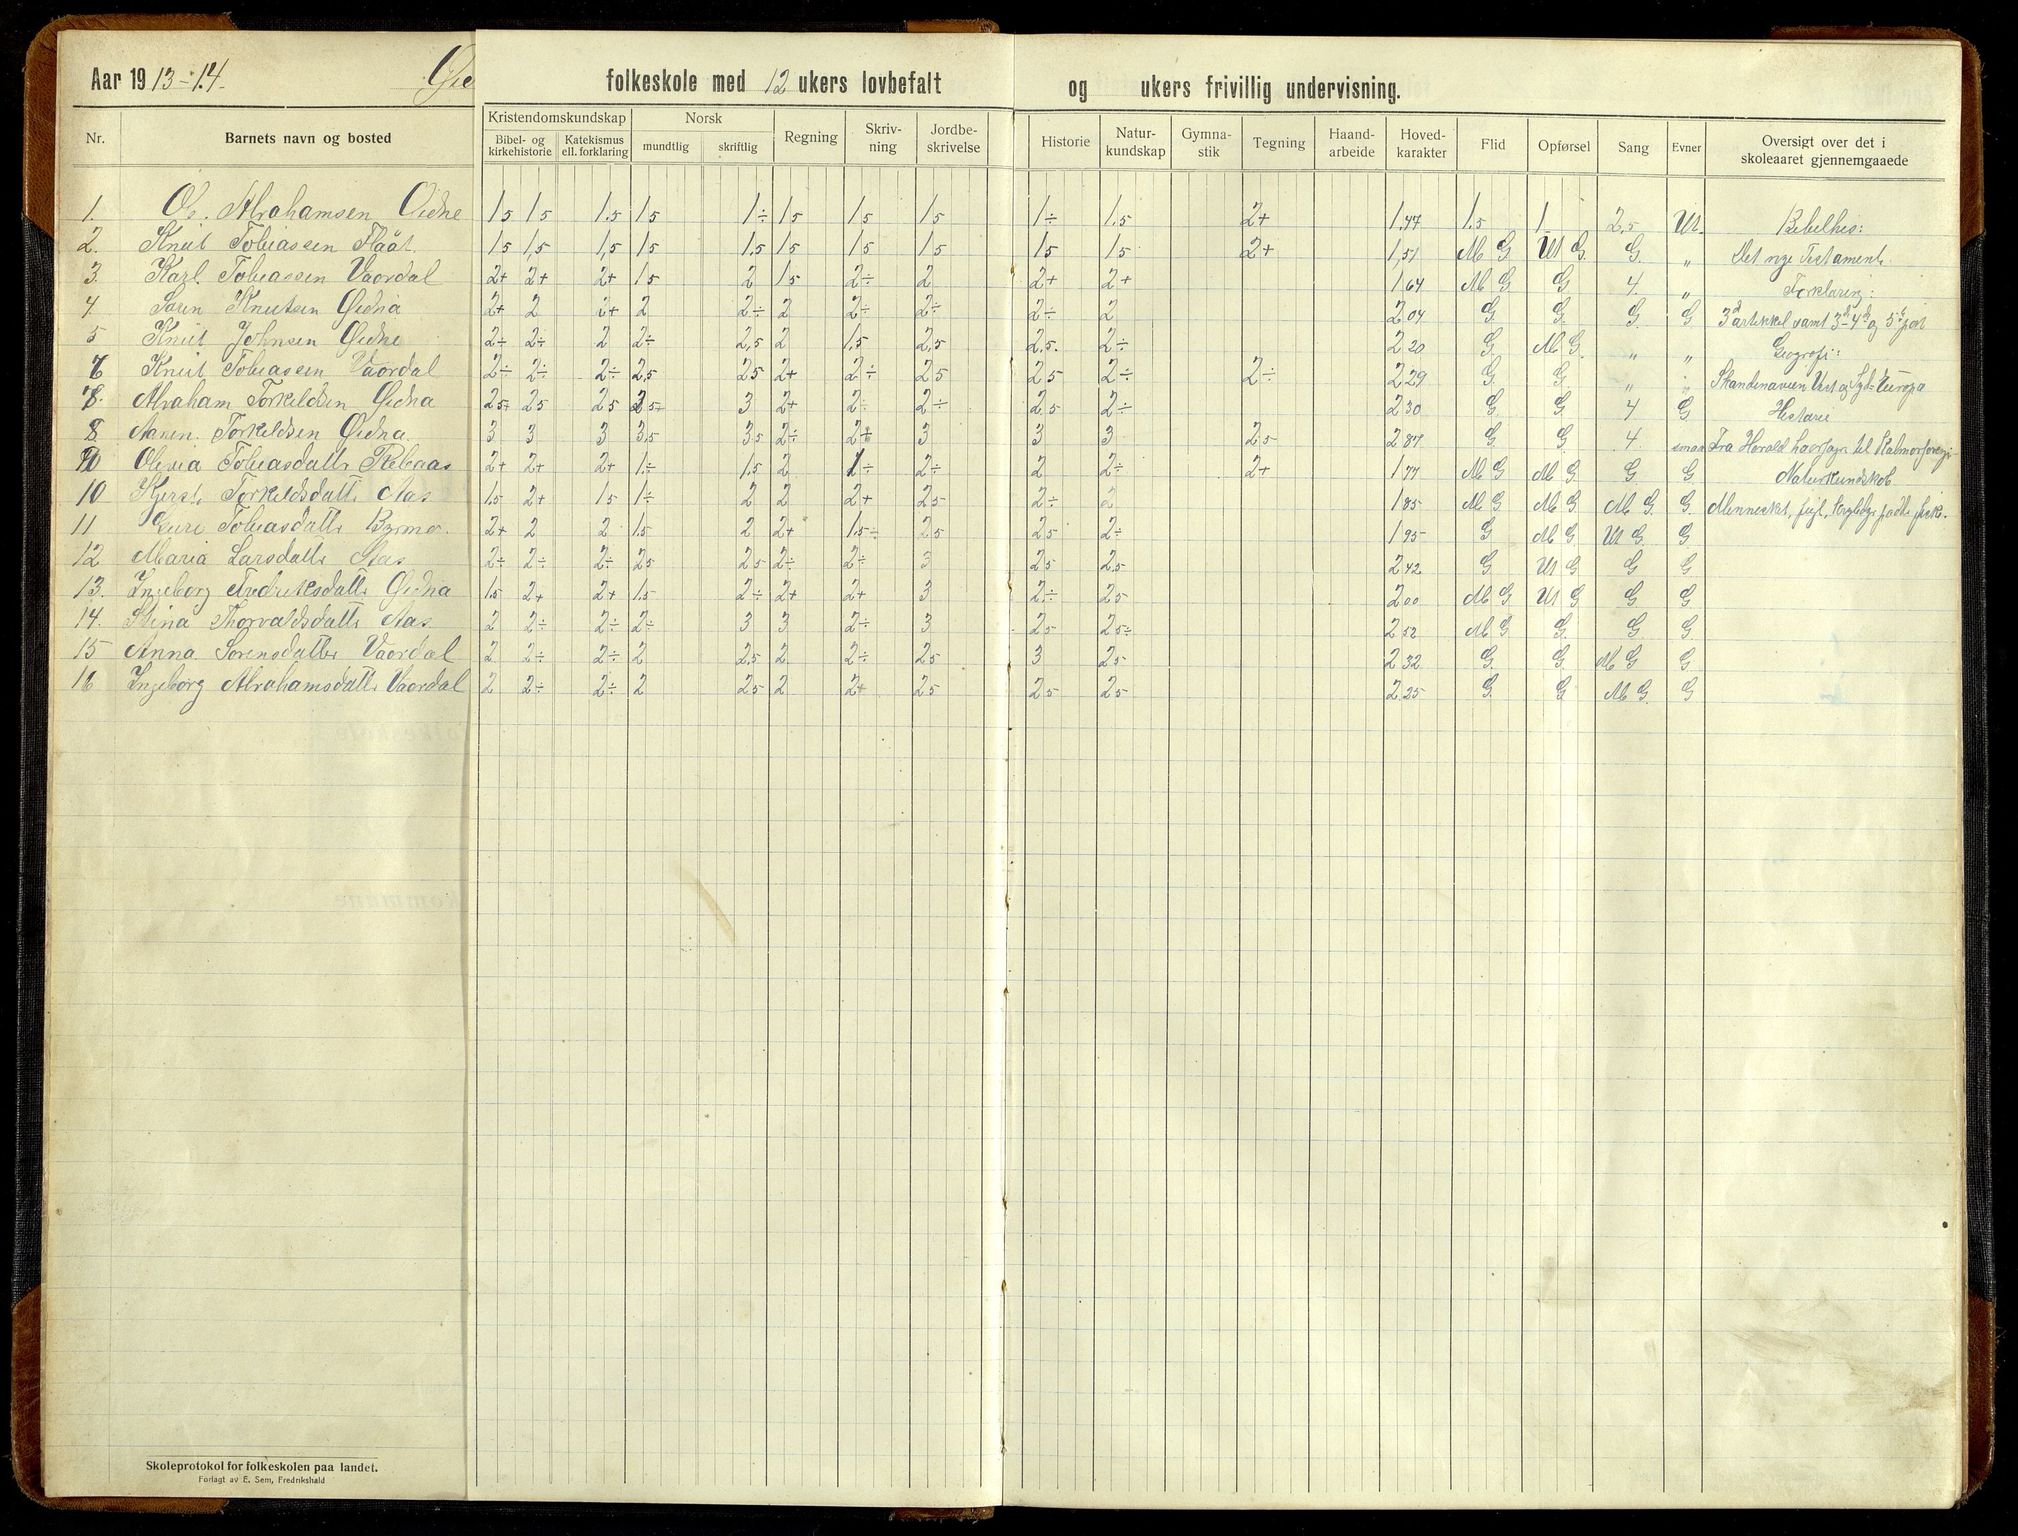 Aar 1913-14. Øie folkeskole med 12 ukers lovbefalt og ukers frivillig undervisning.
Nr. Barnets navn og bosted Kristendomskundskap Bibel- og kirkehistorie Katekismus ell. forklaring Norsk mundtlig skriftlig Regning Skriv-ning Jordbe-skrivelse Historie Natur-kundskap Gymna-stik Tegning Haand-arbeide Hoved-karakter Flid Opførsel Sang Evner Oversigt over det i skoleaaret gjennemgaaede
1. Ol. Abrahamsen Øidne 1,5 1,5 1,5 1,5 1÷ 1,5 1,5 1,5 1÷ 1,5 2+ 1,47 1,5 1 2,5 Ut. Bibelhis:
2. Knut Tobiassen Flaat 1,5 1,5 1,5 1,5 1,5 1,5 1,5 1,5 1,5 1,5 2+ 1,51 M G. Ut G. G. " Det nye Testamente
3. Karl Tobiassen Vaordal 2+ 2+ 2+ 1,5 2 1,5 2÷ 2 2+ 2+ 1,64 M G. G 4. " Forklaring:
4 Søren Knutsen Øidna 2+ 2 2+ 2 2÷ 2 2÷ 2÷ 2÷ 2 2,04 G. G. G G 3d artikkel samt 3d 4d og 5te part
5 Knut Johnsen Øidne 2÷ 2÷ 2 2÷ 2,5 2 1,5 2,5 2,5. 2÷ 2,20 G. M G. " " Geografi:
6 Knut Tobiassen Vaordal 2÷ 2÷ 2÷ 2,5 2,5 2+ 2÷ 2,5 2,5 2÷ 2÷ 2,29 G. G. " " Skandinavien Vest og Syd-Europa
7. Abraham Torkildsen Øidna 2,5+ 2,5 2,5 2,5+ 3 2+ 2÷ 2÷ 2,5 2÷ 2,30 G. G 4 G Historie
8 Aanen. Torkildsen Øidna 3 3 3 3,5 3,5 2÷ 2+ 3 3 3 2,5 2,87 G G 4. smaa Fra Harald Haarfagre til Kalmarforeni-
Olevia Tobiasdatter Røbaas 2+ 2+ 2+ 1÷ 1,5 2 1÷ 2÷ 2 2÷ 2+ 1,77 M G M G. G G. Naturkundskab
10 Kjersti Torkildsdatter Aas 1,5 2+ 1,5 1÷ 2 2 2+ 2,5 2÷ 2 1,85 M G M G M G G. Mennesket, fugl, krybdyr padde fisk.
11 Guri Tobiasdatter Byrmo. 2+ 2 2 1,5 2 2+ 1,5÷ 2,5 2,5 2÷ 1,95 G M G. Ut G. G.
12 Maria Larsdatter Aas 2÷ 2÷ 2÷ 2,5 2,5 2÷ 2÷ 3 2,5 2,5 2,42 G Ut G G G
13. Ingeborg Fredriksdatter Øidna 1,5 2+ 2+ 1,5 2÷ 2+ 2+ 3 2÷ 2,5 2,00 M G Ut G G G
14. Stina Thorvaldsdatter Aas 2 2÷ 2÷ 2÷ 3 3 2÷ 3 2,5 2,5÷ 2,52 M G G. G G
15 Anna Sørensdatter Vaordal 2 2÷ 2÷ 2 2,5 2 2÷ 2,5 3 2,5 2,32 G. G. M G G
16 Ingeborg Abrahamsdatter Vaordal 2 2÷ 2÷ 2 2,5 2 2+ 2,5 2,5 2,5 2,25 G. G M G. G
Skoleprotokol for folkeskolen paa landet.
Forlagt av E. Sem, Fredrikshald